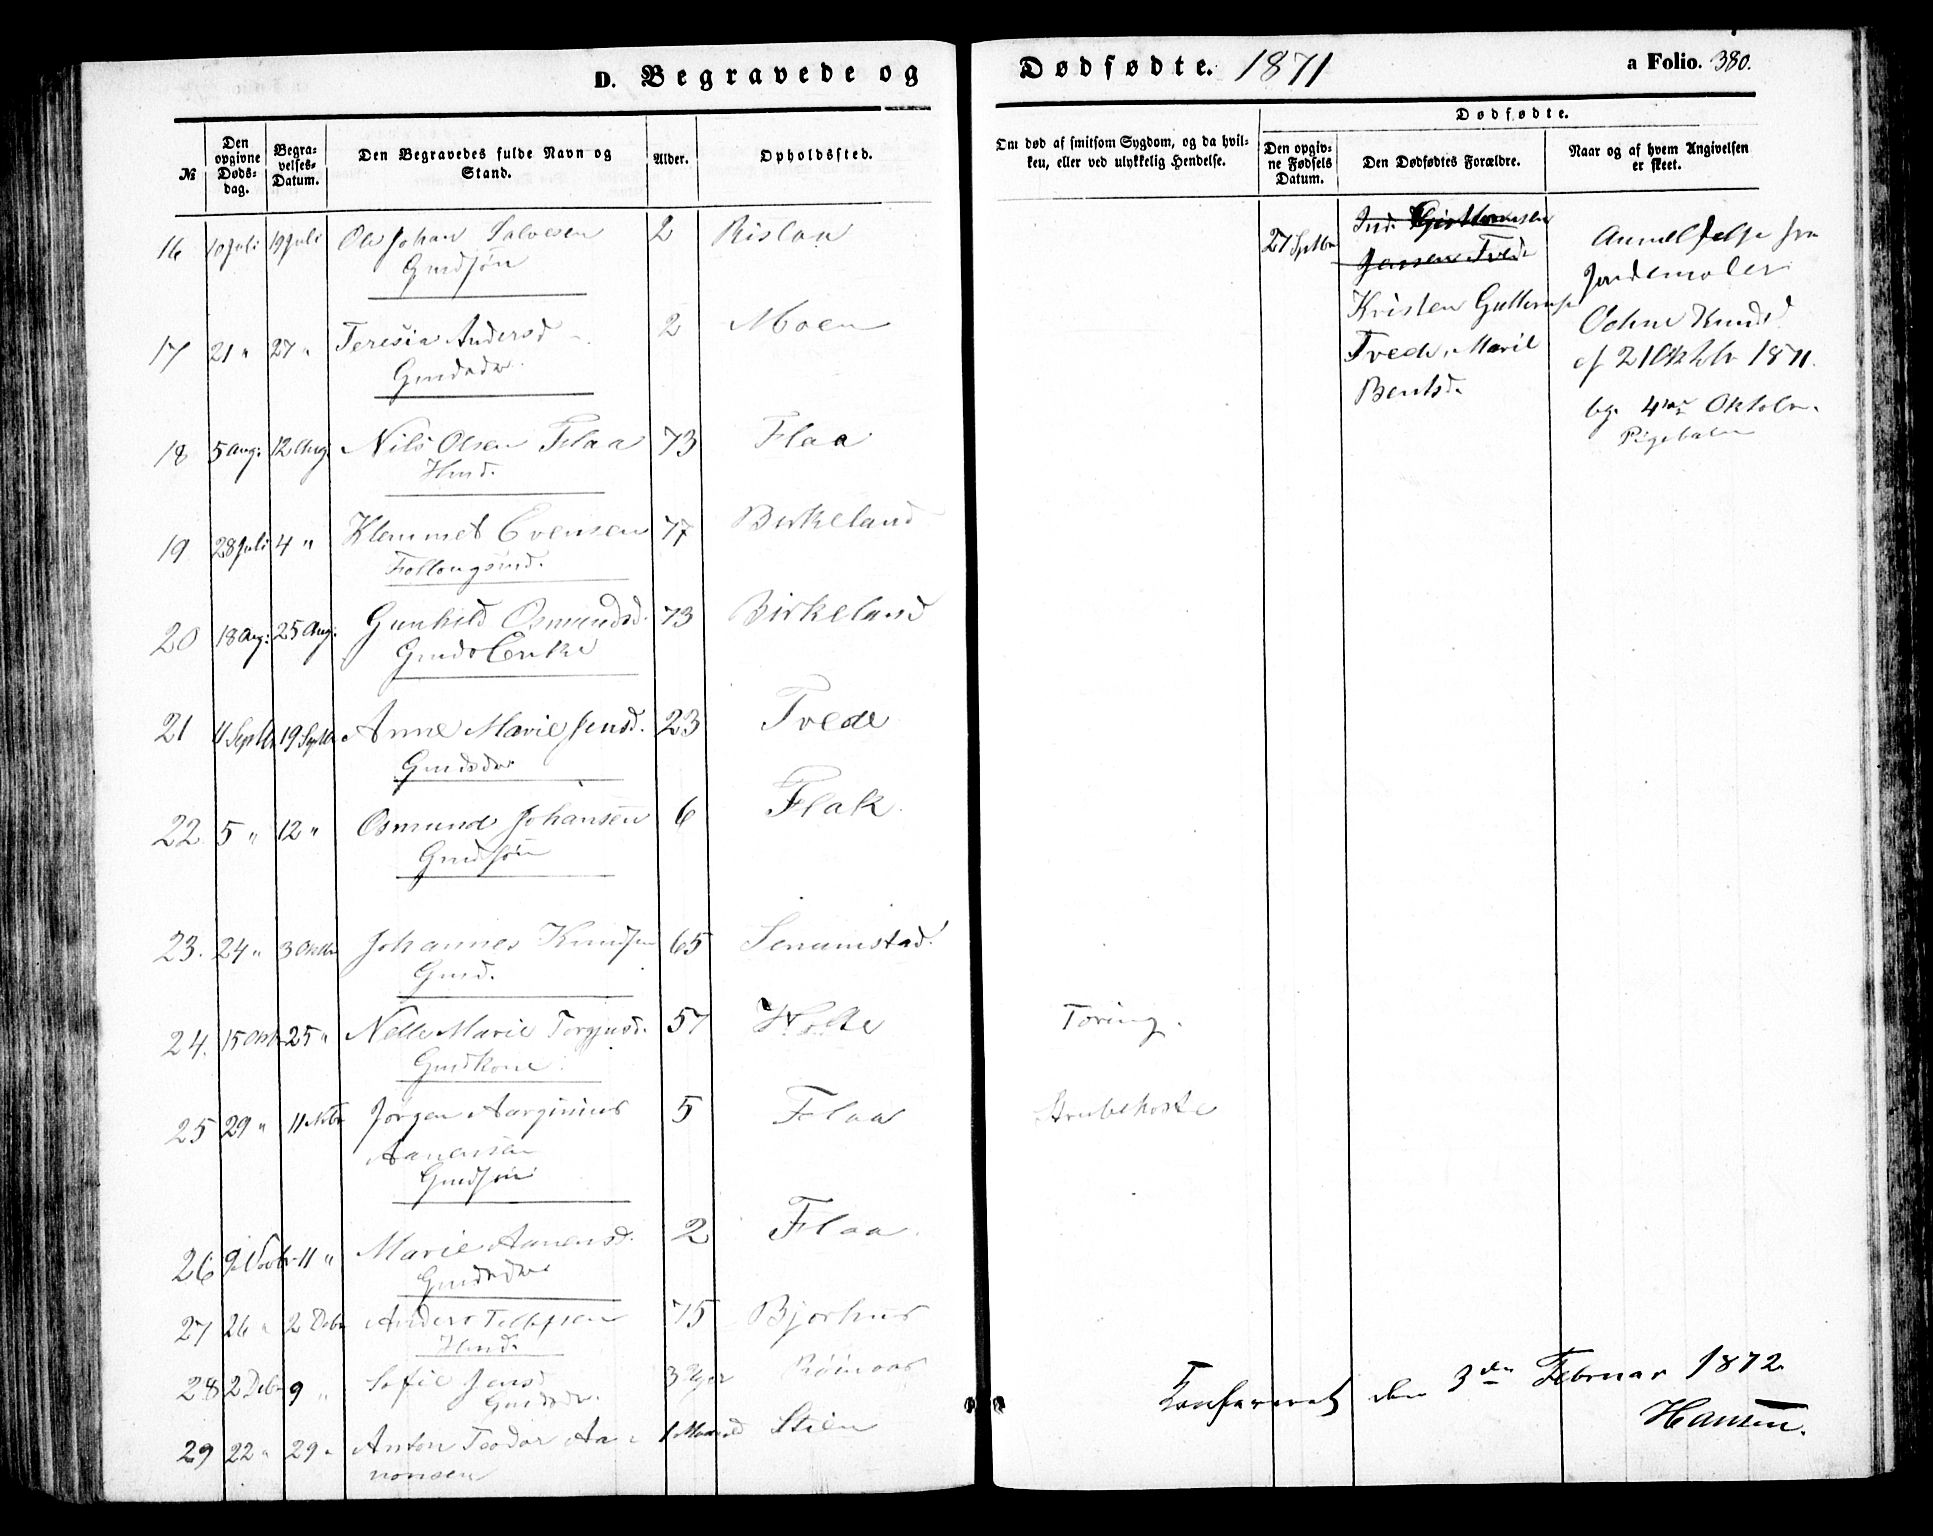 D. Begravede og
№
Den opgivne Døds-dag.
Begra-velses-Datum.
Den Begravedes fulde Navn og Stand.
Alder.
Opholdssted.
16 10 Juli 19 Juli Ole Johan Salvesen 2 Rislaa
Gmdsøn
17 21 " 27 " Teresia Andersd 2 Moen
Gmdsdtr.
18 5 Aug: 12 Aug. Nils Olsen Flaa 73 Flaa
Hmd.
19 28 Juli 4 " Klemmet Evensen 77 Birkeland
Follougsmd.
20 18 Aug: 25 Aug: Gunhild Osmundsd. 73 Birkeland
Gmds Enke
21 11 Septbr 19 Septbr Anne Marie Jensd. 23 Tvede
Gmdsdtr
22 5 " 12 " Osmund Johansen 6 Flak.
Gmdsøn
23. 24 " 3 Oktbr Johannes Knudsen 65 Senumstad.
Gmd.
24. 15 Oktb 25 " Nelle Marie Torgjusd. 57
Gmdkone.
25 29 " 11 Novbr Jørgen Aarginius 5 Flaa
Aanensen
Gmdsøn
26 9 Novbr 11 " Marie Aanensd. 2 Flaa.
Gmdsdtr
27 26 " 2 Debr Anders Tellefsen 75 Bjorhus
Hmd.
28 2 Debr 9 " Sofie Jensd
Gmdsdtr.
29 22 " 29 " Anton Teodor Aa- 1 Maaned Stien
nonsen
Dødfødte. 1871
a Folio. 380.
Om død af smitsom Sygdom, og da hvil-ken, eller ved ulykkelig Hendelse.
Dødfødte.
Den opgiv-ne Fødsels Datum.
Den Dødfødtes Forældre.
Naar og af hvem Angivelsen er skeet.
27 Septbr
Ind. Guttormsen
Jensen Tvede
Kristen Guttormsen
Tvede, Marie
Bentsd.
Anmeldelse fra
Jordemoder
Knudsd
af 2 Oktobr 1871.
bg. 4de Oktober.
Pigebarn
Tæring.
Strubehoste
Konfereret den 3die Februar 1872
Hansen.